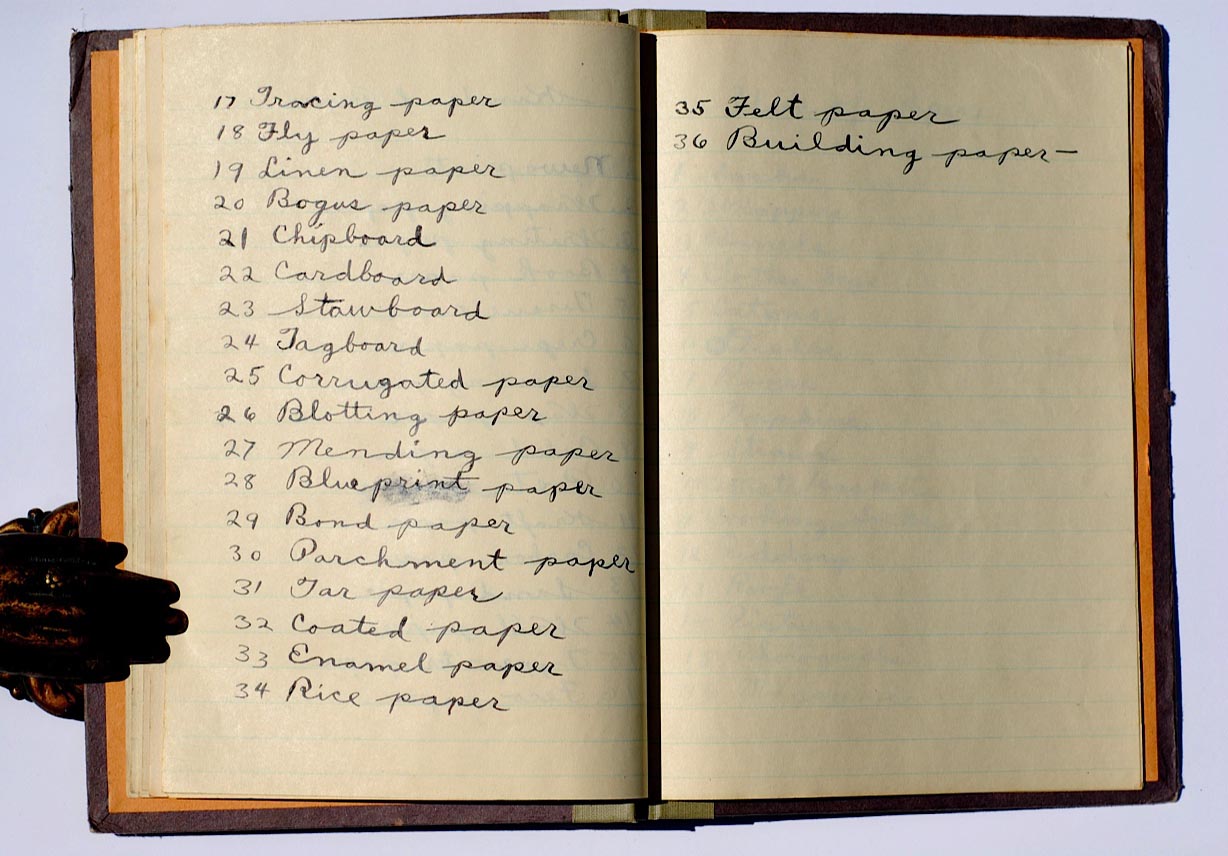 17 Tracing paper
18 Fly paper
19 Linen paper
20 Bogus paper
21 Chipboard
22 Cardboard
23 Stawboard
24 Tagboard
25 Corrugated paper
26 Blotting paper
27 Mending paper
28 Blueprint paper
29 Bond paper
30 Parchment paper
31 Tar paper
32 Coated paper
33 Enamel paper
34 Rice paper
35 Felt paper
36 Building paper—